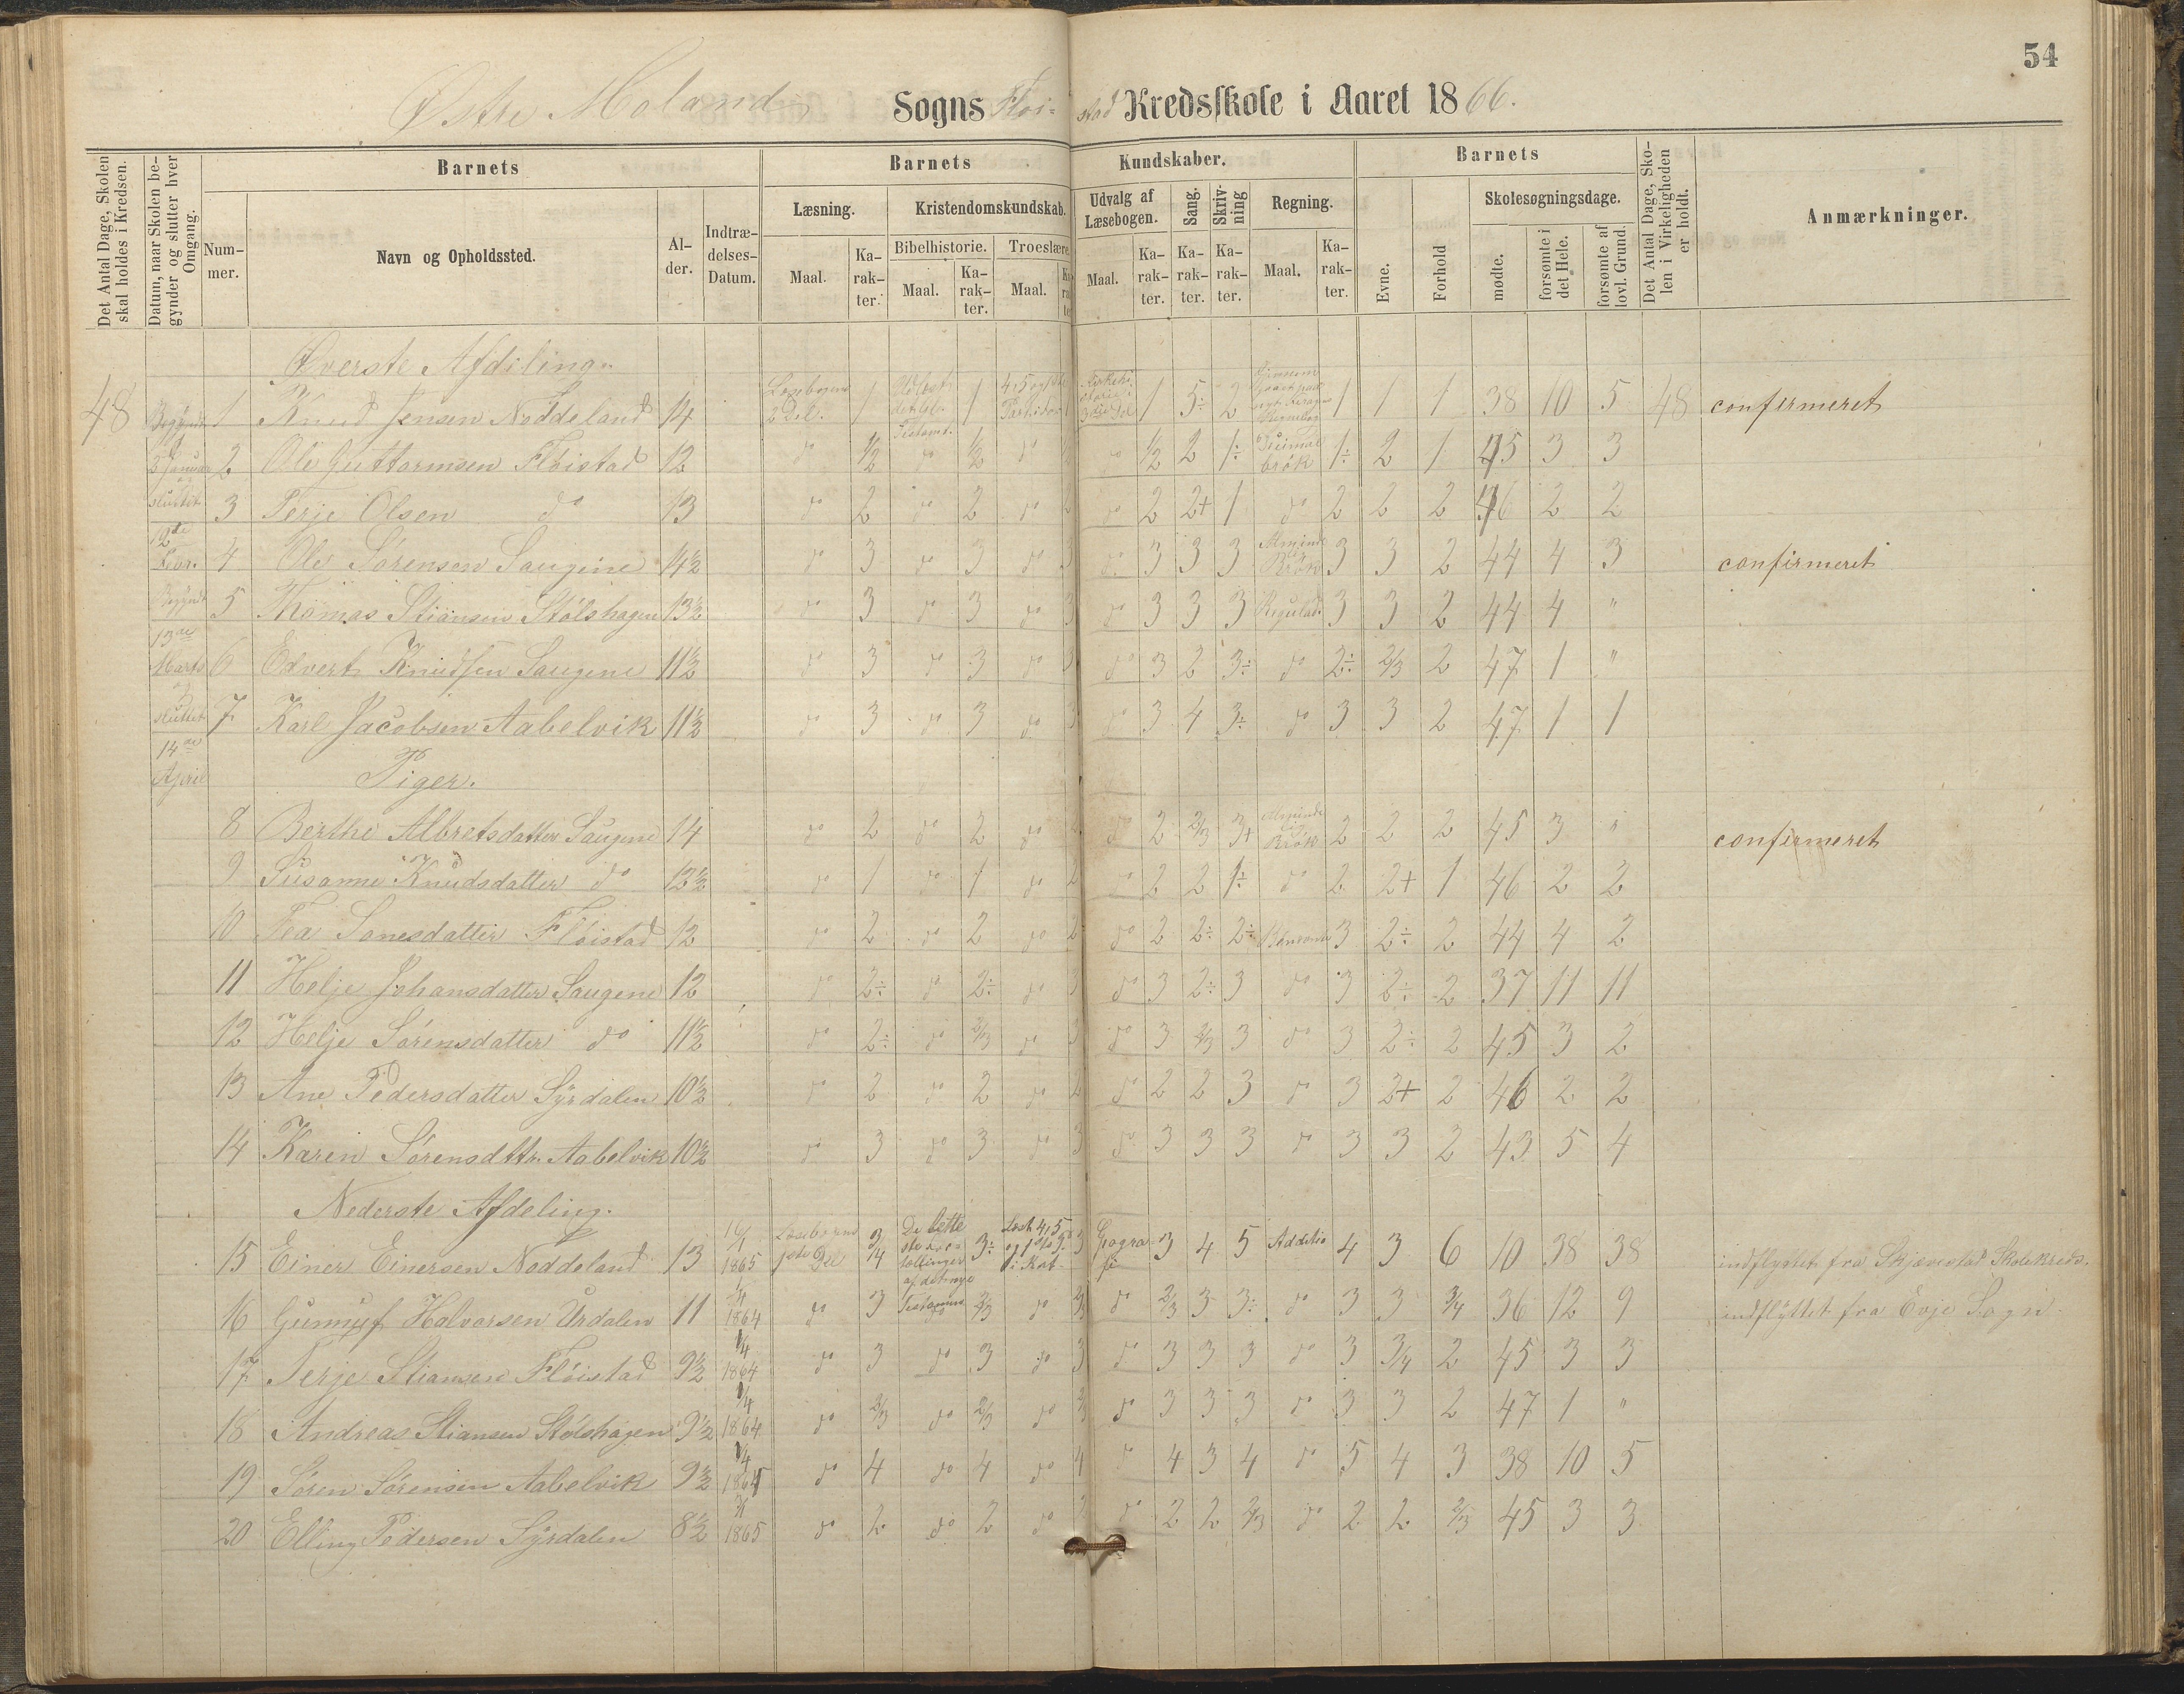 54
Østre Moland Sogns Flöi-stad Kredsskole i Aaret 1866.
Det Antal Dage, Skolen skal holdes i Kredsen.
Datum, naar Skolen begynder og slutter hver Omgang.
Barnets
Nummer.
Navn og Opholdssted.
Alder.
Indtrædelses-Datum.
Barnets Kundskaber.
Læsning. Maal. Karakter.
Kristendomskundskab.
Bibelhistorie. Maal. Karakter.
Troeslære. Maal.
Udvalg af Læsebogen. Maal. Karakter.
Sang. Karakter.
Skrivning Karakter.
Regning. Maal. Karakter.
Barnets
Evne.
Forhold
Skolesøgningsdage.
mødte.
forsømte i det Hele.
forsømte af lovl. Grund.
Det Antal Dage, Skolen i Virkeligheden er holdt.
Anmærkninger.
Øverste Afdiling.
48 Begyndt 1 Knud Jensen Noddeland 14 2 Del. 1 1 1 5÷ 2 1 1 1 38 10 5 48 confirmeret
2 Ole Guttormsen Flöistad 12 do 1/2 do 1/2 do do 1/2 2 1÷ brök 1÷ 2 1 45 3 3
sluttet 3 Terje Olsen do 13 do 2 do 2 do 2 do 2 2+ 1 do 2 2 2 46 2 2
12te Febr. 4 Ole Sörensen Saugene 14½ do 3 do 3 do 3 do 3 3 3 Brök 3 3 2 44 4 3 confirmeret
Begyndt 5 Thomas Stiansen Stölshagen 13½ do 3 do 3 do 3 do 3 3 3 Reguladi 3 3 2 44 4 "
13de Marts 6 Edvert Knudsen Saugene 11½ do 3 do 3 do 3 do 3 2 3÷ do 2÷ 2/3 2 47 1 "
sluttet 7 Karl Jacobsen Aabelvik 11½ do 3 do 3 do 3 do 3 4 3÷ do 3 3 2 47 1 1
14de April
Piger.
8 Berthe Albretsdatter Saugene 14 do 2 do 2 do do 2 2/3 3+ Brök 2 2 2 45 3 " confirmeret
9 Susanne Knudsdatter do 12½ do 1 do 1 do 2 do 2 2 1÷ do 2 2+ 1 46 2 2
10 Tea Tonesdatter Flöistad 12 do 2 do 2 do 2 do 2 2÷ 2÷ 3 2÷ 2 44 4 2
11 Helje Johansdatter Saugene 12 do 2÷ do 2÷ do 3 do 3 2÷ 3 do 3 2÷ 2 37 11 11
12 Helje Sörensdatter do 11½ do 2÷ do 2/3 do 3 do 3 2/3 3 do 3 2÷ 2 45 3 2
13 Ane Pedersdatter Syrdalen 10½ do 2 do 2 do 2 do 2 2 3 do 3 2+ 2 46 2 2
14 Karen Sörensdttr. Aabelvik 10½ do 3 do 3 do 3 do 3 3 3 do 3 3 2 43 5 4
Nederste Afdeling.
15 Einer Einersen Noddeland 13 16/1 1865 Læsebogens 1ste Del 3/4 De lette 3÷ 3 Geografi 3 4 5 Additio 4 3 6 10 38 38 indflyttet fra Skjævestad Skolekreds.
16 Gunnuf Halvorsen Urdalen 11 1/4 1864 do 3 2/3 do 2/3 do 2/3 3 3÷ do 3 3 3/4 36 12 9 indflyttet fra Evje Sogn
17 Terje Stiansen Flöistad 9½ 1/4 1864 do 3 do 3 do 3 do 3 3 3 do 3 3/4 2 45 3 3
18 Andreas Stiansen Stölshagen 9½ 1/4 1864 do 2/3 do 2/3 do 2/3 do 3 3 3 do 3 3 2 47 1 "
19 Sören Sörensen Aabelvik 9½ 1/4 1864 do 4 do 4 do 4 do 4 3 4 do 5 4 3 38 10 5
20 Elling Pedersen Syrdalen 8½ 1865 do 2 do 2 do 2 do 2 2 2/3 do 2 2 2/3 45 3 3